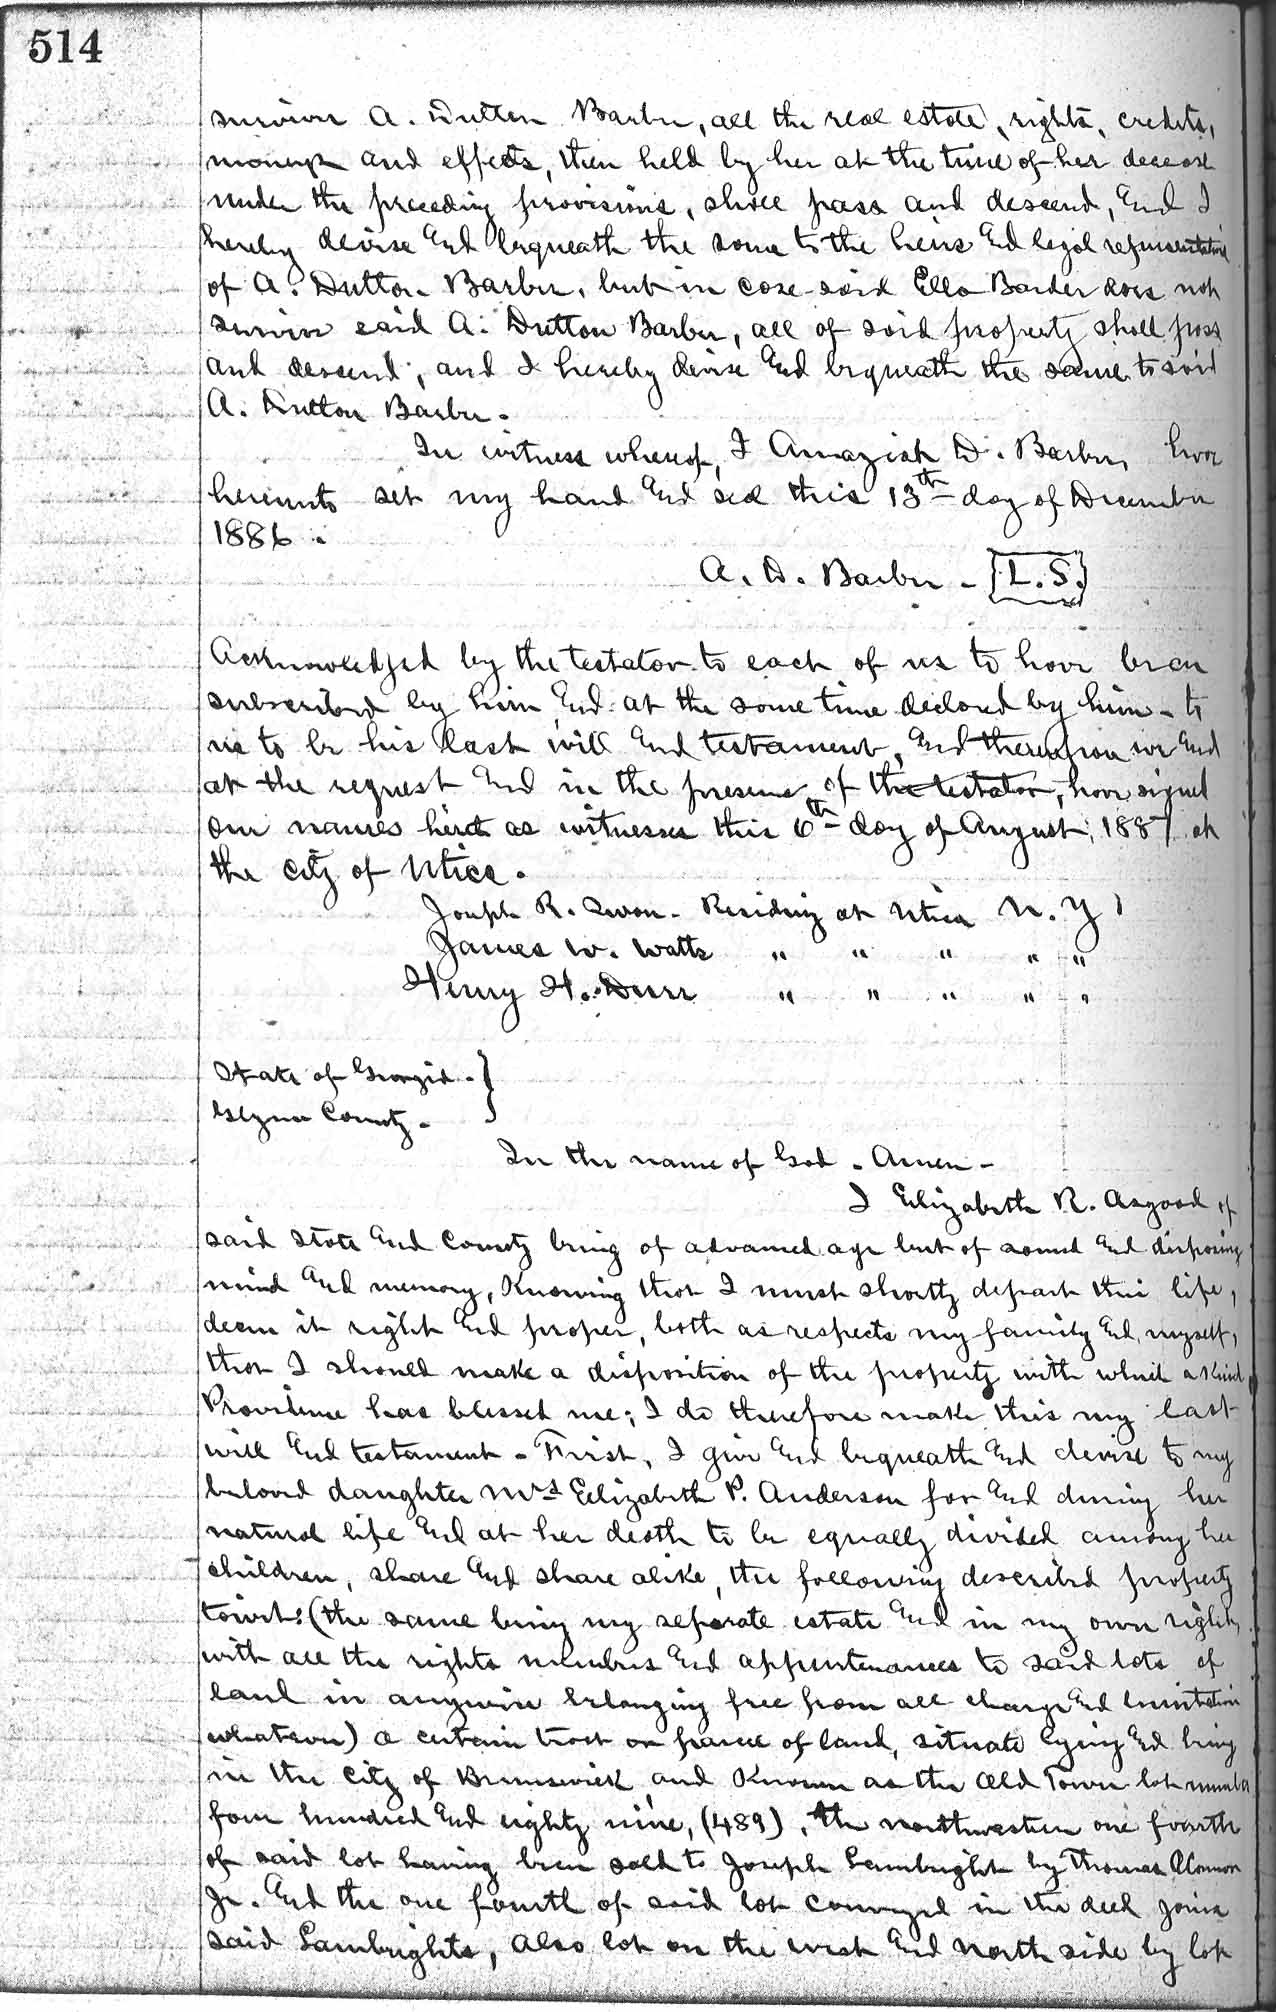 514
survive A. Dutton Barber, all the real estate, rights, credits,
moneys and effects, then held by her at the time of her decease
under the preceding provisions, shall pass and descend, and I
hereby devise and bequeath the same to the heirs and legal representatives
of A. Dutton Barber, but in case said Ella Barber does not
survive said A. Dutton Barber, all of said property shall pass
and descend, and I hereby devise and bequeath the same to said
A. Dutton Barber.
In witness whereof, I Amaziah D. Barber, have
hereunto set my hand and seal this 13th day of December
1886.
A. D. Barber - L.S.
Acknowledged by the testator to each of us to have been
subscribed by him and at the same time declared by him to
us to be his last will and testament, and thereupon we and
at the request and in the presence of the testator, have signed
our names hereto as witnesses this 6th day of August, 1887 at
the city of Utica.
Joseph R. Swan - Residing at Utica N.Y.
James W. Watts " " " " "
Henry H. Durr " " " " "
State of Georgia. }
Glynn County.
In the name of God - Amen -
I Elizabeth R. Asgood of
said State and County being of advanced age but of sound and disposing
mind and memory, Knowing that I must shortly depart this life,
deem it right and proper, both as respects my family and myself,
that I should make a disposition of the property with which a Kind
Providence has blessed me; I do therefore make this my last
will and testament - First, I give and bequeath and devise to my
beloved daughter Mrs Elizabeth P. Anderson for and during her
natural life and at her death to be equally divided among her
children, share and share alike, the following described property
towit: (the same being my separate estate and in my own right,
with all the rights members and appurtenances to said lots of
land in anywise belonging free from all charge and limitation
whatsoever) a certain tract or parcel of land, situate lying and being
in the City of Brunswick and Known as the Old Town lot number
four hundred and eighty nine, (489), the northwestern one fourth
of said lot having been sold to Joseph Lambright by Thomas OConnor
Jr. and the one fourth of said lot conveyed in the deed joins
said Lambrights, Also lot on the west and north side by lot